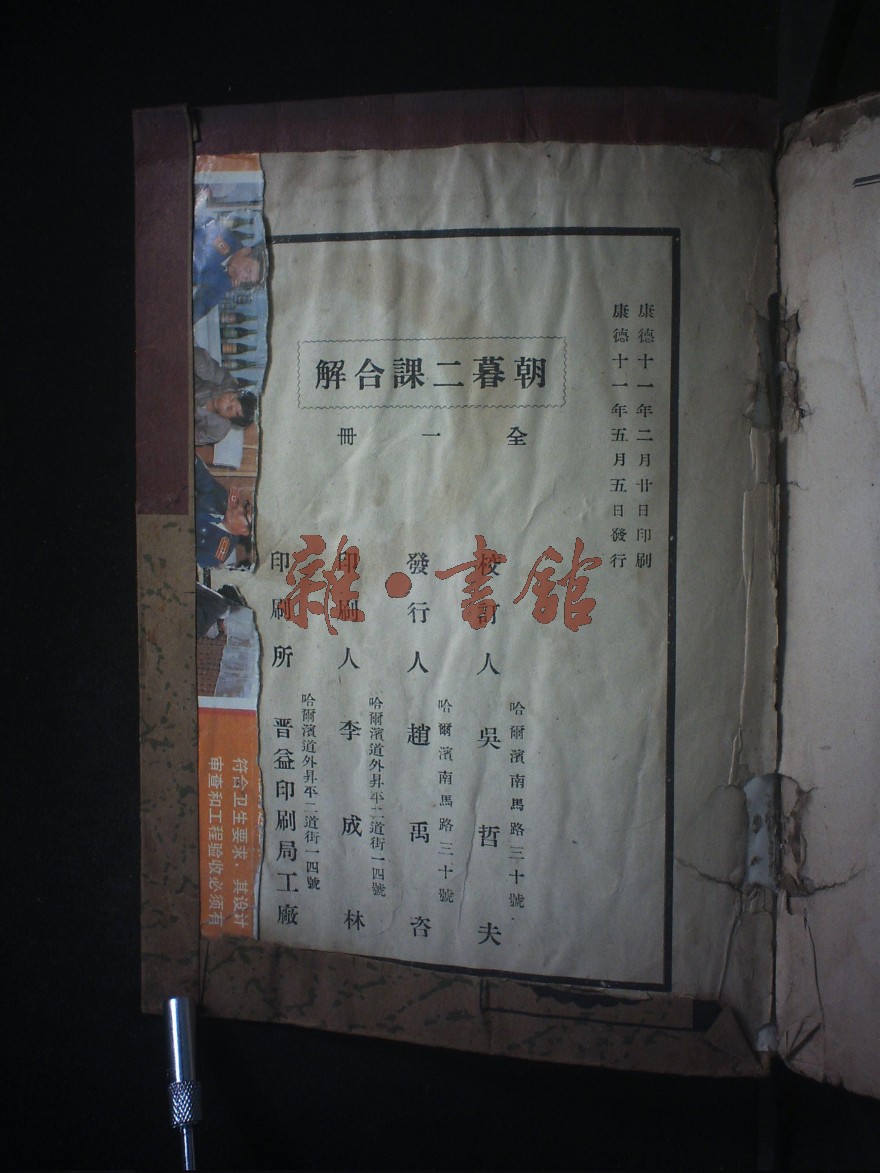 康德十一年二月廿日印刷
康德十一年五月五日發行
朝暮二課合解
全一冊
哈爾濱南馬路三十號
校訂人 吳哲夫
哈爾濱南馬路三十號
發行人 趙禹咨
哈爾濱道外昇平二道街一四號
印刷人 李成林
哈爾濱道外昇平二道街一四號
印刷所 晋益印刷局工廠
雜·書館
符合卫生要求，其设计
审查和工程验收必须有